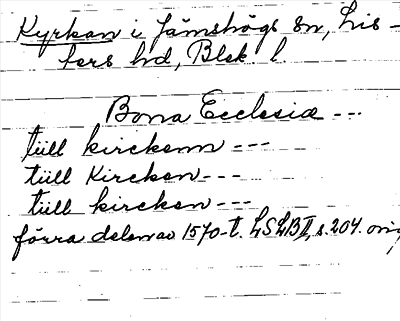 Kyrkan i Jämshögs sn, Lis-
ters hd, Blek. l.
Bona Ecclesia ---
tüll kirckenn ---
tüll Kircken ---
tüll kircken ---
förra delen av 1570-t. LSLB II, s. 204. orig